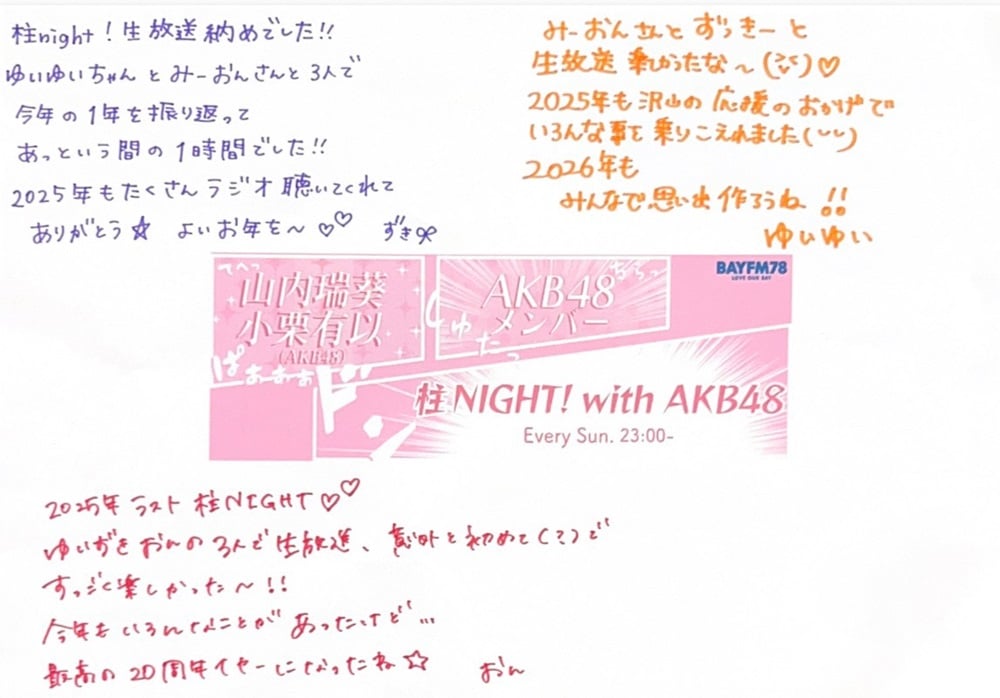 柱night！生放送納めでした!!
ゆいゆいちゃんとみーおんさんと3人で
今年の1年を振り返って
あっという間の1時間でした!!
2025年もたくさんラジオ聴いてくれて
ありがとう☆ よいお年を〜♡♡ ずき
みーおんさんとずっきーと
生放送楽しかったな〜♡
2025年も沢山の応援のおかげで
いろんな事を乗りこえれました
2026年も
みんなで思い出作ろうね!!
ゆいゆい
てへっ
山内瑞葵
小栗有以
(AKB48)
ぱぁぁぁぁ
ド
きらっ
AKB48
メンバー
しゅたっ
BAYFM78
LOVE OUR BAY
柱NIGHT! with AKB48
Every Sun. 23:00-
2025年ラスト柱NIGHT♡♡
ゆいずきおんの3人で生放送、意外と初めて(?)で
すっごく楽しかった〜!!
今年もいろんなことがあったけど…
最高の20周年イヤーになったね☆ おん